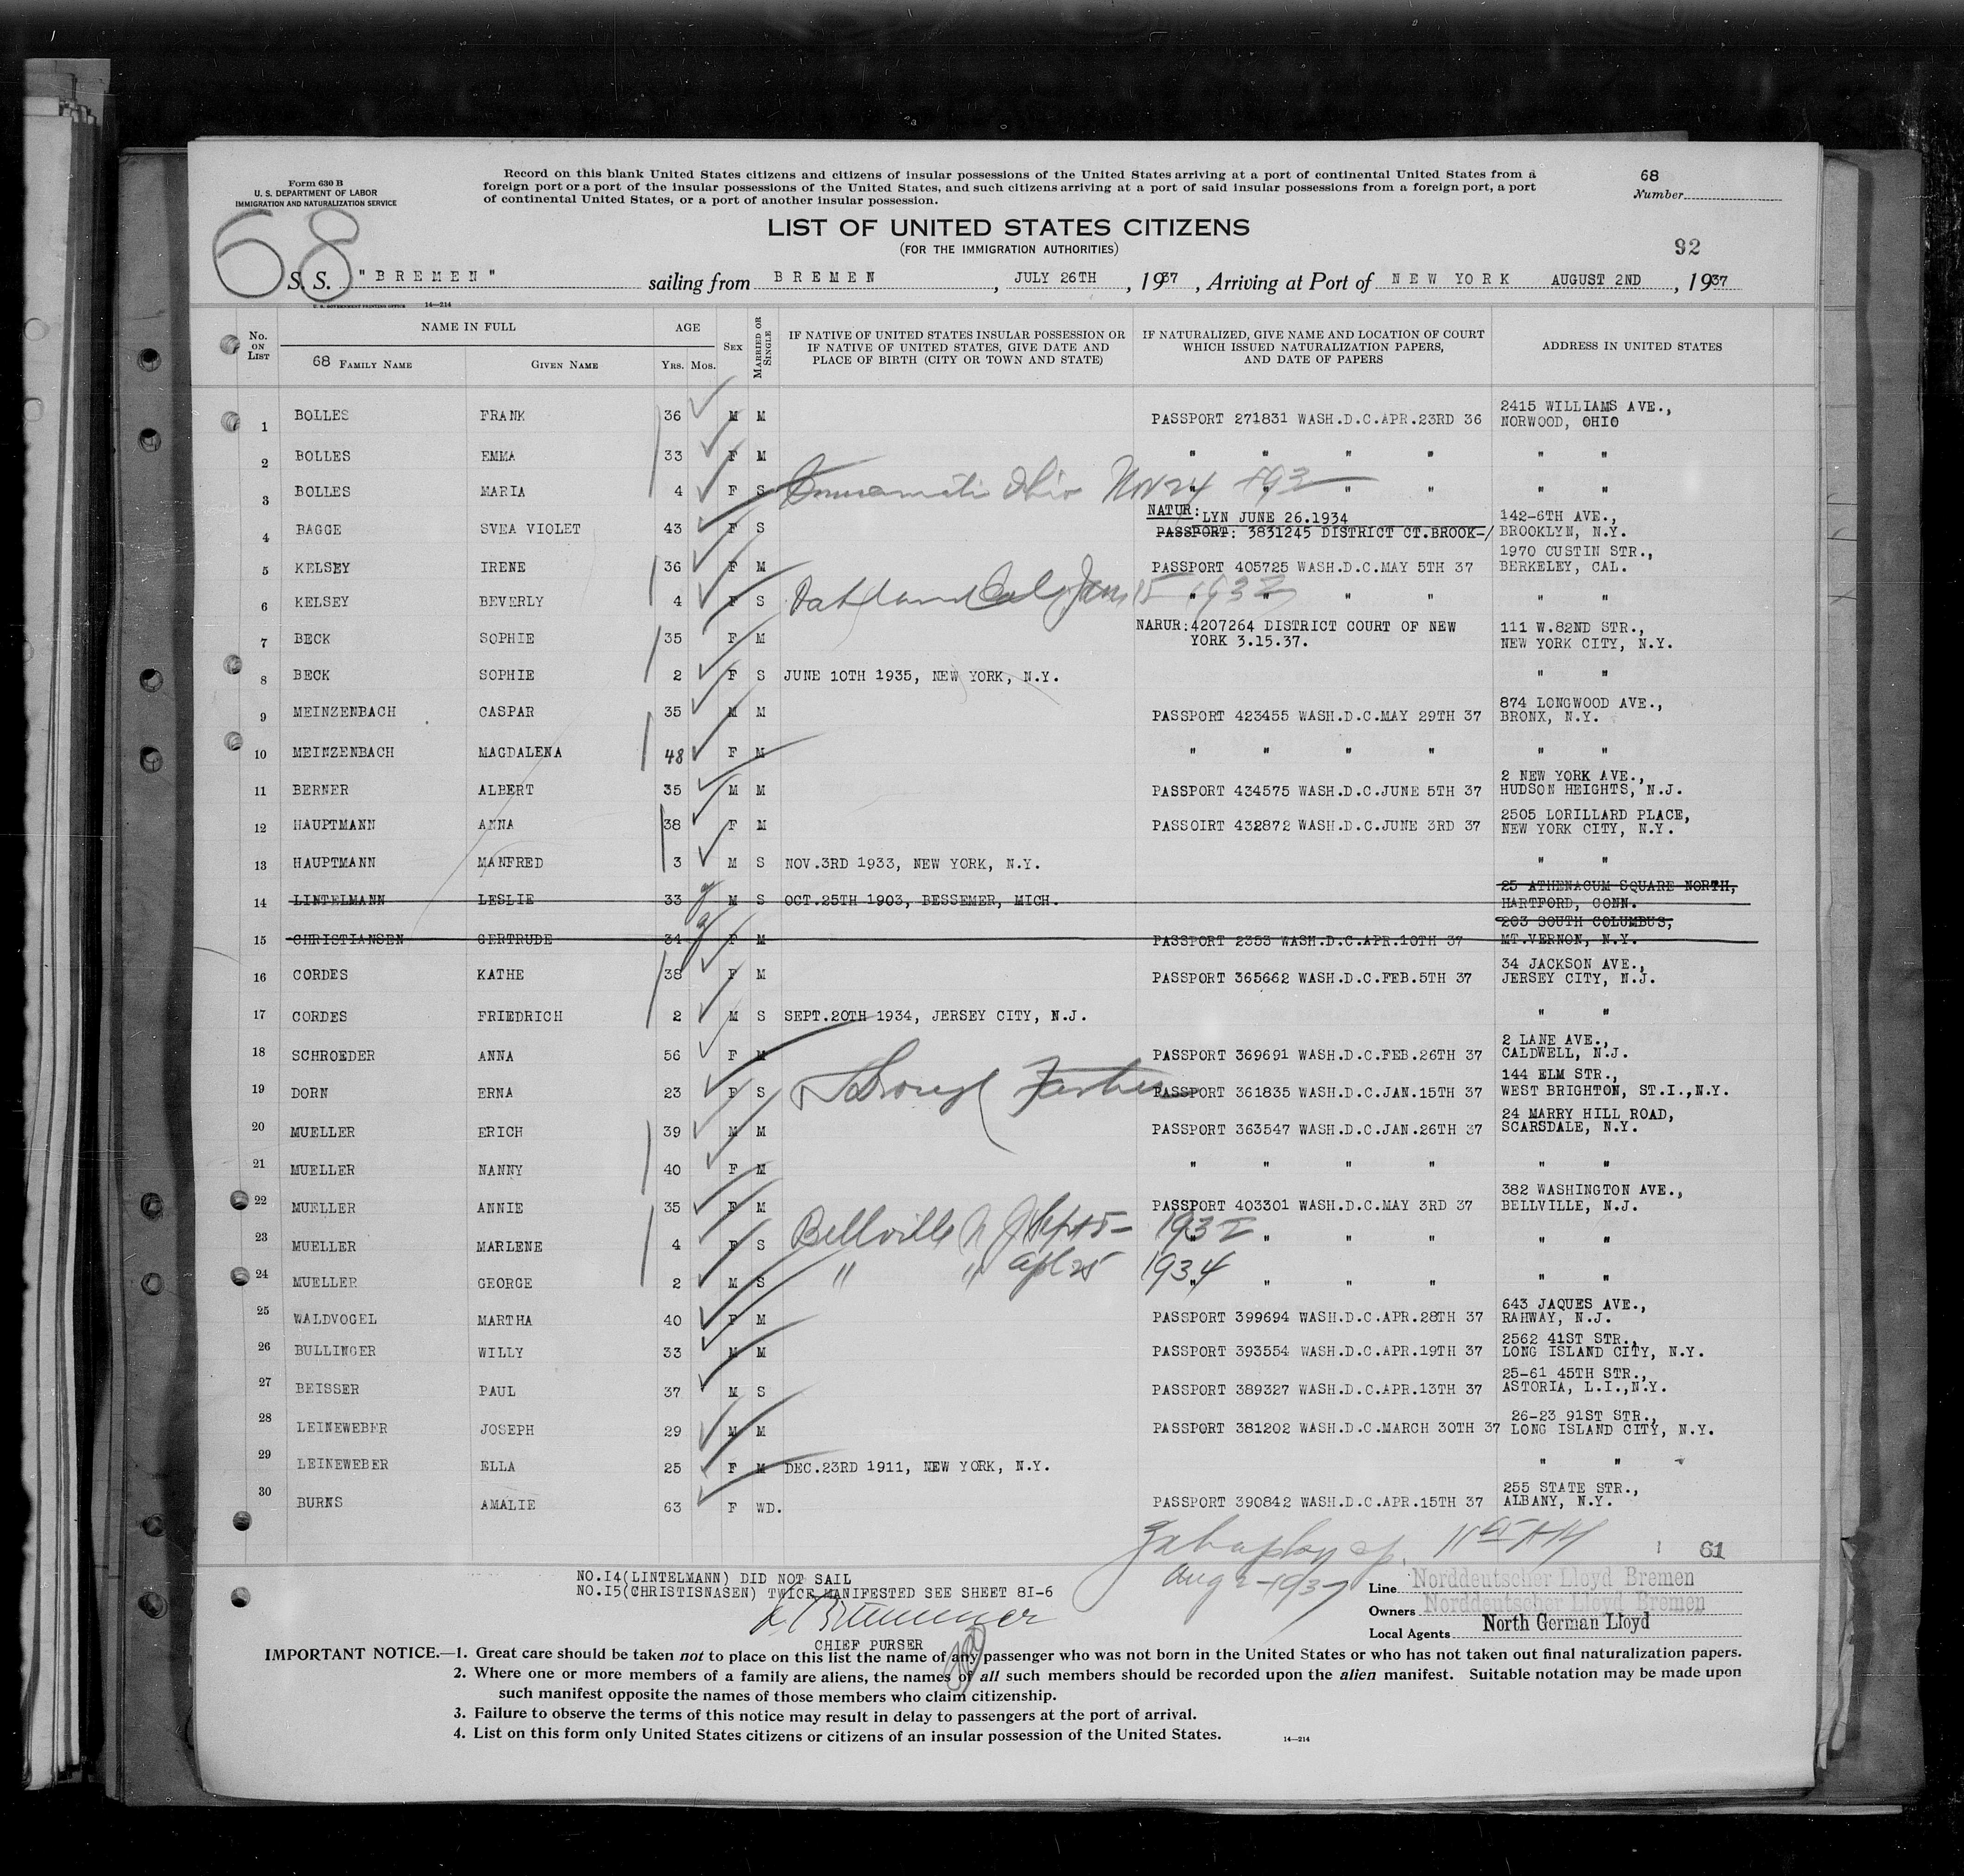 Form 630 B
U. S. DEPARTMENT OF LABOR
IMMIGRATION AND NATURALIZATION SERVICE
Record on this blank United States citizens and citizens of insular possessions of the United States arriving at a port of continental United States from a
foreign port or a port of the insular possessions of the United States, and such citizens arriving at a port of said insular possessions from a foreign port, a port
of continental United States, or a port of another insular possession.
68
Number
LIST OF UNITED STATES CITIZENS
(FOR THE IMMIGRATION AUTHORITIES)
92
68
S. S. "BREMEN" sailing from BREMEN, JULY 26TH, 1937, Arriving at Port of NEW YORK AUGUST 2ND, 1937
U. S. GOVERNMENT PRINTING OFFICE 14—214
No. ON LIST
NAME IN FULL
68 FAMILY NAME GIVEN NAME
AGE
YRS. MOS.
SEX
MARRIED OR SINGLE
IF NATIVE OF UNITED STATES INSULAR POSSESSION OR
IF NATIVE OF UNITED STATES, GIVE DATE AND
PLACE OF BIRTH (CITY OR TOWN AND STATE)
IF NATURALIZED, GIVE NAME AND LOCATION OF COURT
WHICH ISSUED NATURALIZATION PAPERS,
AND DATE OF PAPERS
ADDRESS IN UNITED STATES
1 BOLLES FRANK 36 M M PASSPORT 271831 WASH.D.C.APR.23RD 36 2415 WILLIAMS AVE.,
NORWOOD, OHIO
2 BOLLES EMMA 33 F M " " " " " "
3 BOLLES MARIA 4 F S Ohio Nov 24 193 " " " " "
4 BAGGE SVEA VIOLET 43 F S NATUR: LYN JUNE 26.1934 142-6TH AVE.,
PASSPORT: 3831245 DISTRICT CT.BROOK-/ BROOKLYN, N.Y.
5 KELSEY IRENE 36 F M PASSPORT 405725 WASH.D.C.MAY 5TH 37 1970 CUSTIN STR.,
BERKELEY, CAL.
6 KELSEY BEVERLY 4 F S Oakland Cal Jan 15 1932 " " " " " "
7 BECK SOPHIE 35 F M NARUR:4207264 DISTRICT COURT OF NEW 111 W.82ND STR.,
YORK 3.15.37. NEW YORK CITY, N.Y.
8 BECK SOPHIE 2 F S JUNE 10TH 1935, NEW YORK, N.Y. " "
9 MEINZENBACH CASPAR 35 M M PASSPORT 423455 WASH.D.C.MAY 29TH 37 874 LONGWOOD AVE.,
BRONX, N.Y.
10 MEINZENBACH MAGDALENA 48 F M " " " " " "
11 BERNER ALBERT 35 M M PASSPORT 434575 WASH.D.C.JUNE 5TH 37 2 NEW YORK AVE.,
HUDSON HEIGHTS, N.J.
12 HAUPTMANN ANNA 38 F M PASSOIRT 432872 WASH.D.C.JUNE 3RD 37 2505 LORILLARD PLACE,
NEW YORK CITY, N.Y.
13 HAUPTMANN MANFRED 3 M S NOV.3RD 1933, NEW YORK, N.Y. " "
14 LINTELMANN LESLIE 33 M S OCT.25TH 1903, BESSEMER, MICH. 25 ATHENACUM SQUARE NORTH,
HARTFORD, CONN.
15 CHRISTIANSEN GERTRUDE 34 F M PASSPORT 2353 WASH.D.C.APR.10TH 37 203 SOUTH COLUMBUS,
MT.VERNON, N.Y.
16 CORDES KATHE 38 F M PASSPORT 365662 WASH.D.C.FEB.5TH 37 34 JACKSON AVE.,
JERSEY CITY, N.J.
17 CORDES FRIEDRICH 2 M S SEPT.20TH 1934, JERSEY CITY, N.J. " "
18 SCHROEDER ANNA 56 F M PASSPORT 369691 WASH.D.C.FEB.26TH 37 2 LANE AVE.,
CALDWELL, N.J.
19 DORN ERNA 23 F S PASSPORT 361835 WASH.D.C.JAN.15TH 37 144 ELM STR.,
WEST BRIGHTON, ST.I.,N.Y.
20 MUELLER ERICH 39 M M PASSPORT 363547 WASH.D.C.JAN.26TH 37 24 MARRY HILL ROAD,
SCARSDALE, N.Y.
21 MUELLER NANNY 40 F M " " " " " "
22 MUELLER ANNIE 35 F M PASSPORT 403301 WASH.D.C.MAY 3RD 37 382 WASHINGTON AVE.,
BELLVILLE, N.J.
23 MUELLER MARLENE 4 F S Bellville N J Sept 5- 1932 " " " " " "
24 MUELLER GEORGE 2 M S " " Apl 25 1934 " " " " " "
25 WALDVOGEL MARTHA 40 F M PASSPORT 399694 WASH.D.C.APR.28TH 37 643 JAQUES AVE.,
RAHWAY, N.J.
26 BULLINGER WILLY 33 M M PASSPORT 393554 WASH.D.C.APR.19TH 37 2562 41ST STR.,
LONG ISLAND CITY, N.Y.
27 BEISSER PAUL 37 M S PASSPORT 389327 WASH.D.C.APR.13TH 37 25-61 45TH STR.,
ASTORIA, L.I.,N.Y.
28 LEINEWEBER JOSEPH 29 M M PASSPORT 381202 WASH.D.C.MARCH 30TH 37 26-23 91ST STR.,
LONG ISLAND CITY, N.Y.
29 LEINEWEBER ELLA 25 F M DEC.23RD 1911, NEW YORK, N.Y. " "
30 BURNS AMALIE 63 F WD. PASSPORT 390842 WASH.D.C.APR.15TH 37 255 STATE STR.,
ALBANY, N.Y.
61
Aug 2-1937
NO.I4(LINTELMANN) DID NOT SAIL
NO.I5(CHRISTISNASEN) TWICE MANIFESTED SEE SHEET 8I-6
CHIEF PURSER
Line Norddeutscher Lloyd Bremen
Owners Norddeutscher Lloyd Bremen
Local Agents North German Lloyd
IMPORTANT NOTICE.—1. Great care should be taken not to place on this list the name of any passenger who was not born in the United States or who has not taken out final naturalization papers.
2. Where one or more members of a family are aliens, the names of all such members should be recorded upon the alien manifest. Suitable notation may be made upon
such manifest opposite the names of those members who claim citizenship.
3. Failure to observe the terms of this notice may result in delay to passengers at the port of arrival.
4. List on this form only United States citizens or citizens of an insular possession of the United States.
14—214